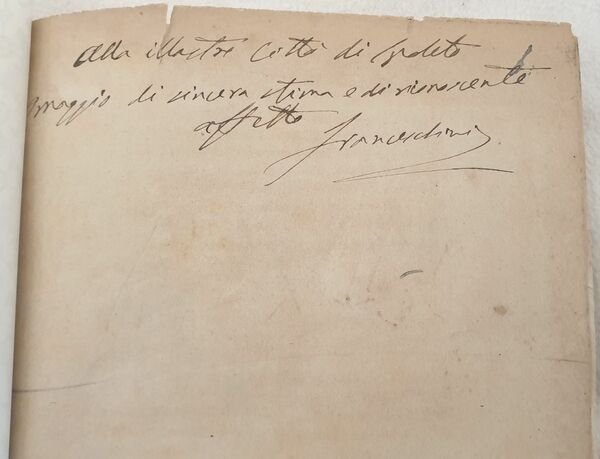 Alla illustre Città di Spoleto
omaggio di sincera stima e di riconoscente
affetto Franceschini